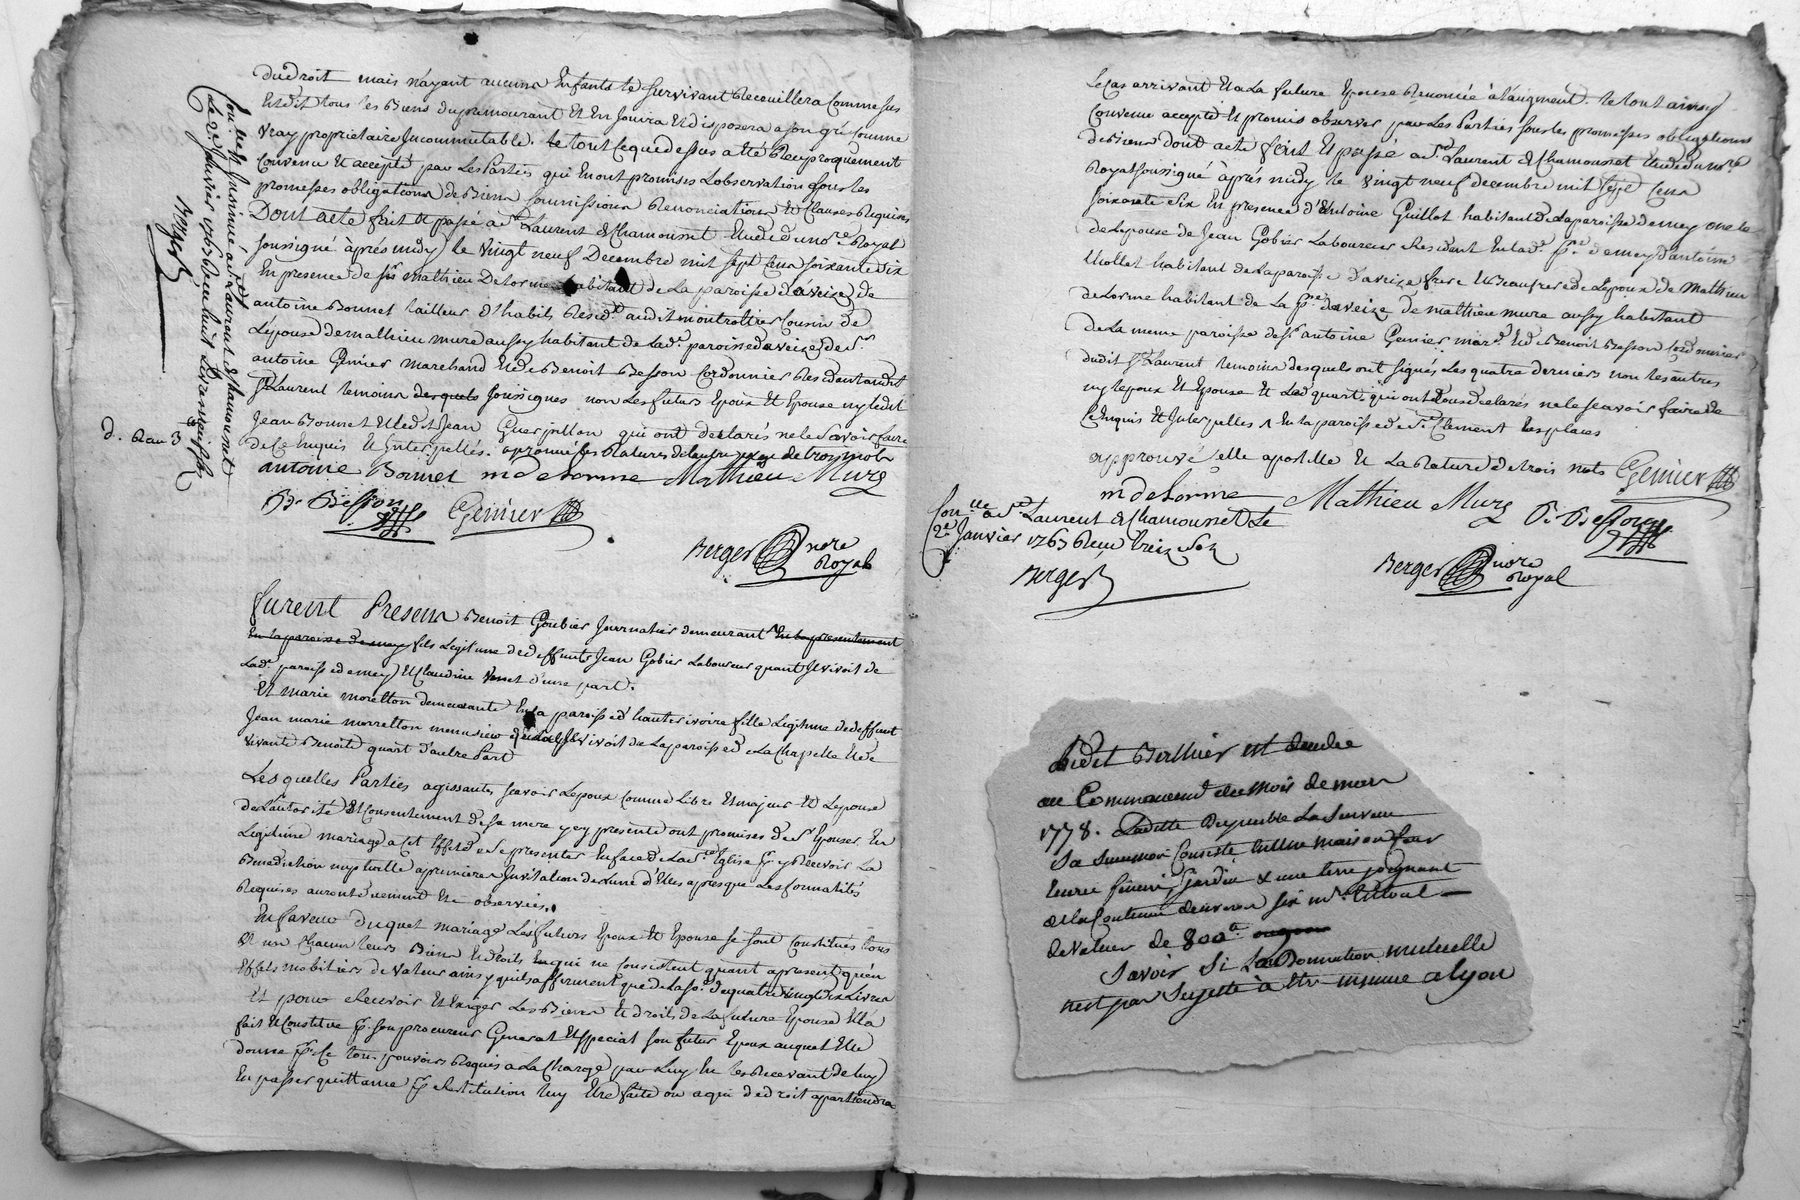 du droit mais n'ayant aucuns Enfants le Survivant Recouillera Comme sus
Est dit tous les Biens du premourant Et En Jouira Et disposera a son gré Comme
vray proprietaire Incommutable. le tout Ce que dessus a Eté Reciproquement
Convenu Et accepté par Les Parties qui En ont promises L'observation sous les
promesses obligations de Biens soumissions Renonciations Et Clauses Requises
Dont acte fait Et passé a St Laurent de Chamousset Etude du nore Royal
soussigné après midy le vingt neuf Decembre mil sept Cens soixante Six
En presence de sr Mathieu Delorme habitant de La paroisse d'aveize de
antoine Bonnet tailleur d'habits Residt audit montrottier Cousin de
L'épouse de mathieu mure aussy habitant de Lade paroisse d'aveize de Sr
antoine Génier marchand Et de Benoit Besson Cordonnier Residant audit
St Laurent temoins desquels soussignés non Les futurs Epoux Et Epouse ny ledit
Jean Bonnet Et ledit Jean Guerpillon qui ont declarés ne le Savoir faire
de Ce Enquis Et Interpellés. approuvé les Ratures de trois mots
antoine Bonnet mdelorme Mathieu Mure
B. Besson Genier
Berger nore
Royal
Conlé Et Insinué a St Laurent de Chamousset
Le 2e Janvier 1767 Reçu huit Livres
Berger
d. R au 3
furent Presens Benoit Goubier Journalier demeurant presentement
En la paroisse de meys fils Legitime de deffunts Jean Gobier Laboureur quant Il vivoit de
Lade paroisse de meys Et Claudine Venet d'une part.
Et marie moretton demeurante En la paroisse d'hauterivoire fille Legitime de deffunt
Jean marie morretton menusier quand Il vivoit de La paroisse de La Chapelle Et de
vivante Benoite quart d'autre Part
Lesquelles Parties agissantes sçavoir L'epoux Comme Libre Et majeur Et L'epouse
de L'autorité Et Consentement de sa mere y cy presente ont promises de S'Epouser En
Legitime mariage a Cet Effet de se presenter En face de La Ste Eglise pr y Recevoir La
Benediction nuptielle a premiere Invitation de L'une d'Elles apres que Les formalités
Requises auront duement Eté observées.
En faveur duquel mariage Les futurs Epoux Et Epouse se sont Constitués tous
Et un Chacun leurs Biens Et droits qui ne Consistent quant apresent qu'en
Effets mobiliers de valeur ainsy qu'ils afferment que de La somme de quatre vingt dix Livres
Et pour Recevoir Et Exiger Les Biens Et droits de La future Epouse Elle a
fait Et Constitué pr son procureur General Et special son futur Epoux auquel Elle
donne pr Ce tous pouvoirs Requis a La Charge par Luy En les Recevant de luy
En passer quittance pr Restitution luy Etre faite ou a qui de droit apartiendra
Le Cas arrivant Et a La future Epouse Renoncée à l'augment. le tout ainsy
Convenu accepté Et promis observer par Les Parties sous les promesses obligations
de Biens dont acte fait Et passé a St Laurent de Chamousset Etude du nore
Royal soussigné après midy le vingt neuf decembre mil sept Cens
soixante Six En presence d'Antoine Guillot habitant de La paroisse de meys oncle
de L'epouse de Jean Gobier Laboureur Resident En lade pse de meys d'antoine
thollet habitant de La paroisse d'aveize frere Et Beaufrere de L'epoux de Mathieu
delorme habitant de La pse d'aveize de mathieu mure aussy habitant
de La meme paroisse de Sr antoine Genier mard Et de Benoit Besson Cordonnier
dudit St Laurent temoins desquels ont signés Les quatre derniers non les autres
ny l'epoux Et Epouse Et Lade quart, qui ont tous declarés ne le scavoir faire de
Ce Enquis Et Interpelles
approuvé Et La Rature de trois mots Genier
mdelorme Mathieu Mure B. Besson
Conlle a St Laurent de Chamousset Le
2e Janvier 1767 Reçu treize sols
Berger
Berger nore
Royal
Ledit Berthier est decedé
au Commencemt du mois de mars
1778. Laditte Depuible La Survecu
Sa Succession Consiste En une maison four
Ecurie feniere, Jardin & une terre joignant
de la Contenue d'environ six mres Le tout
de valeur de 800ᵗ
Savoir Si La Donnation mutuelle
n'est pas Sujette à Etre insinuée a Lyon